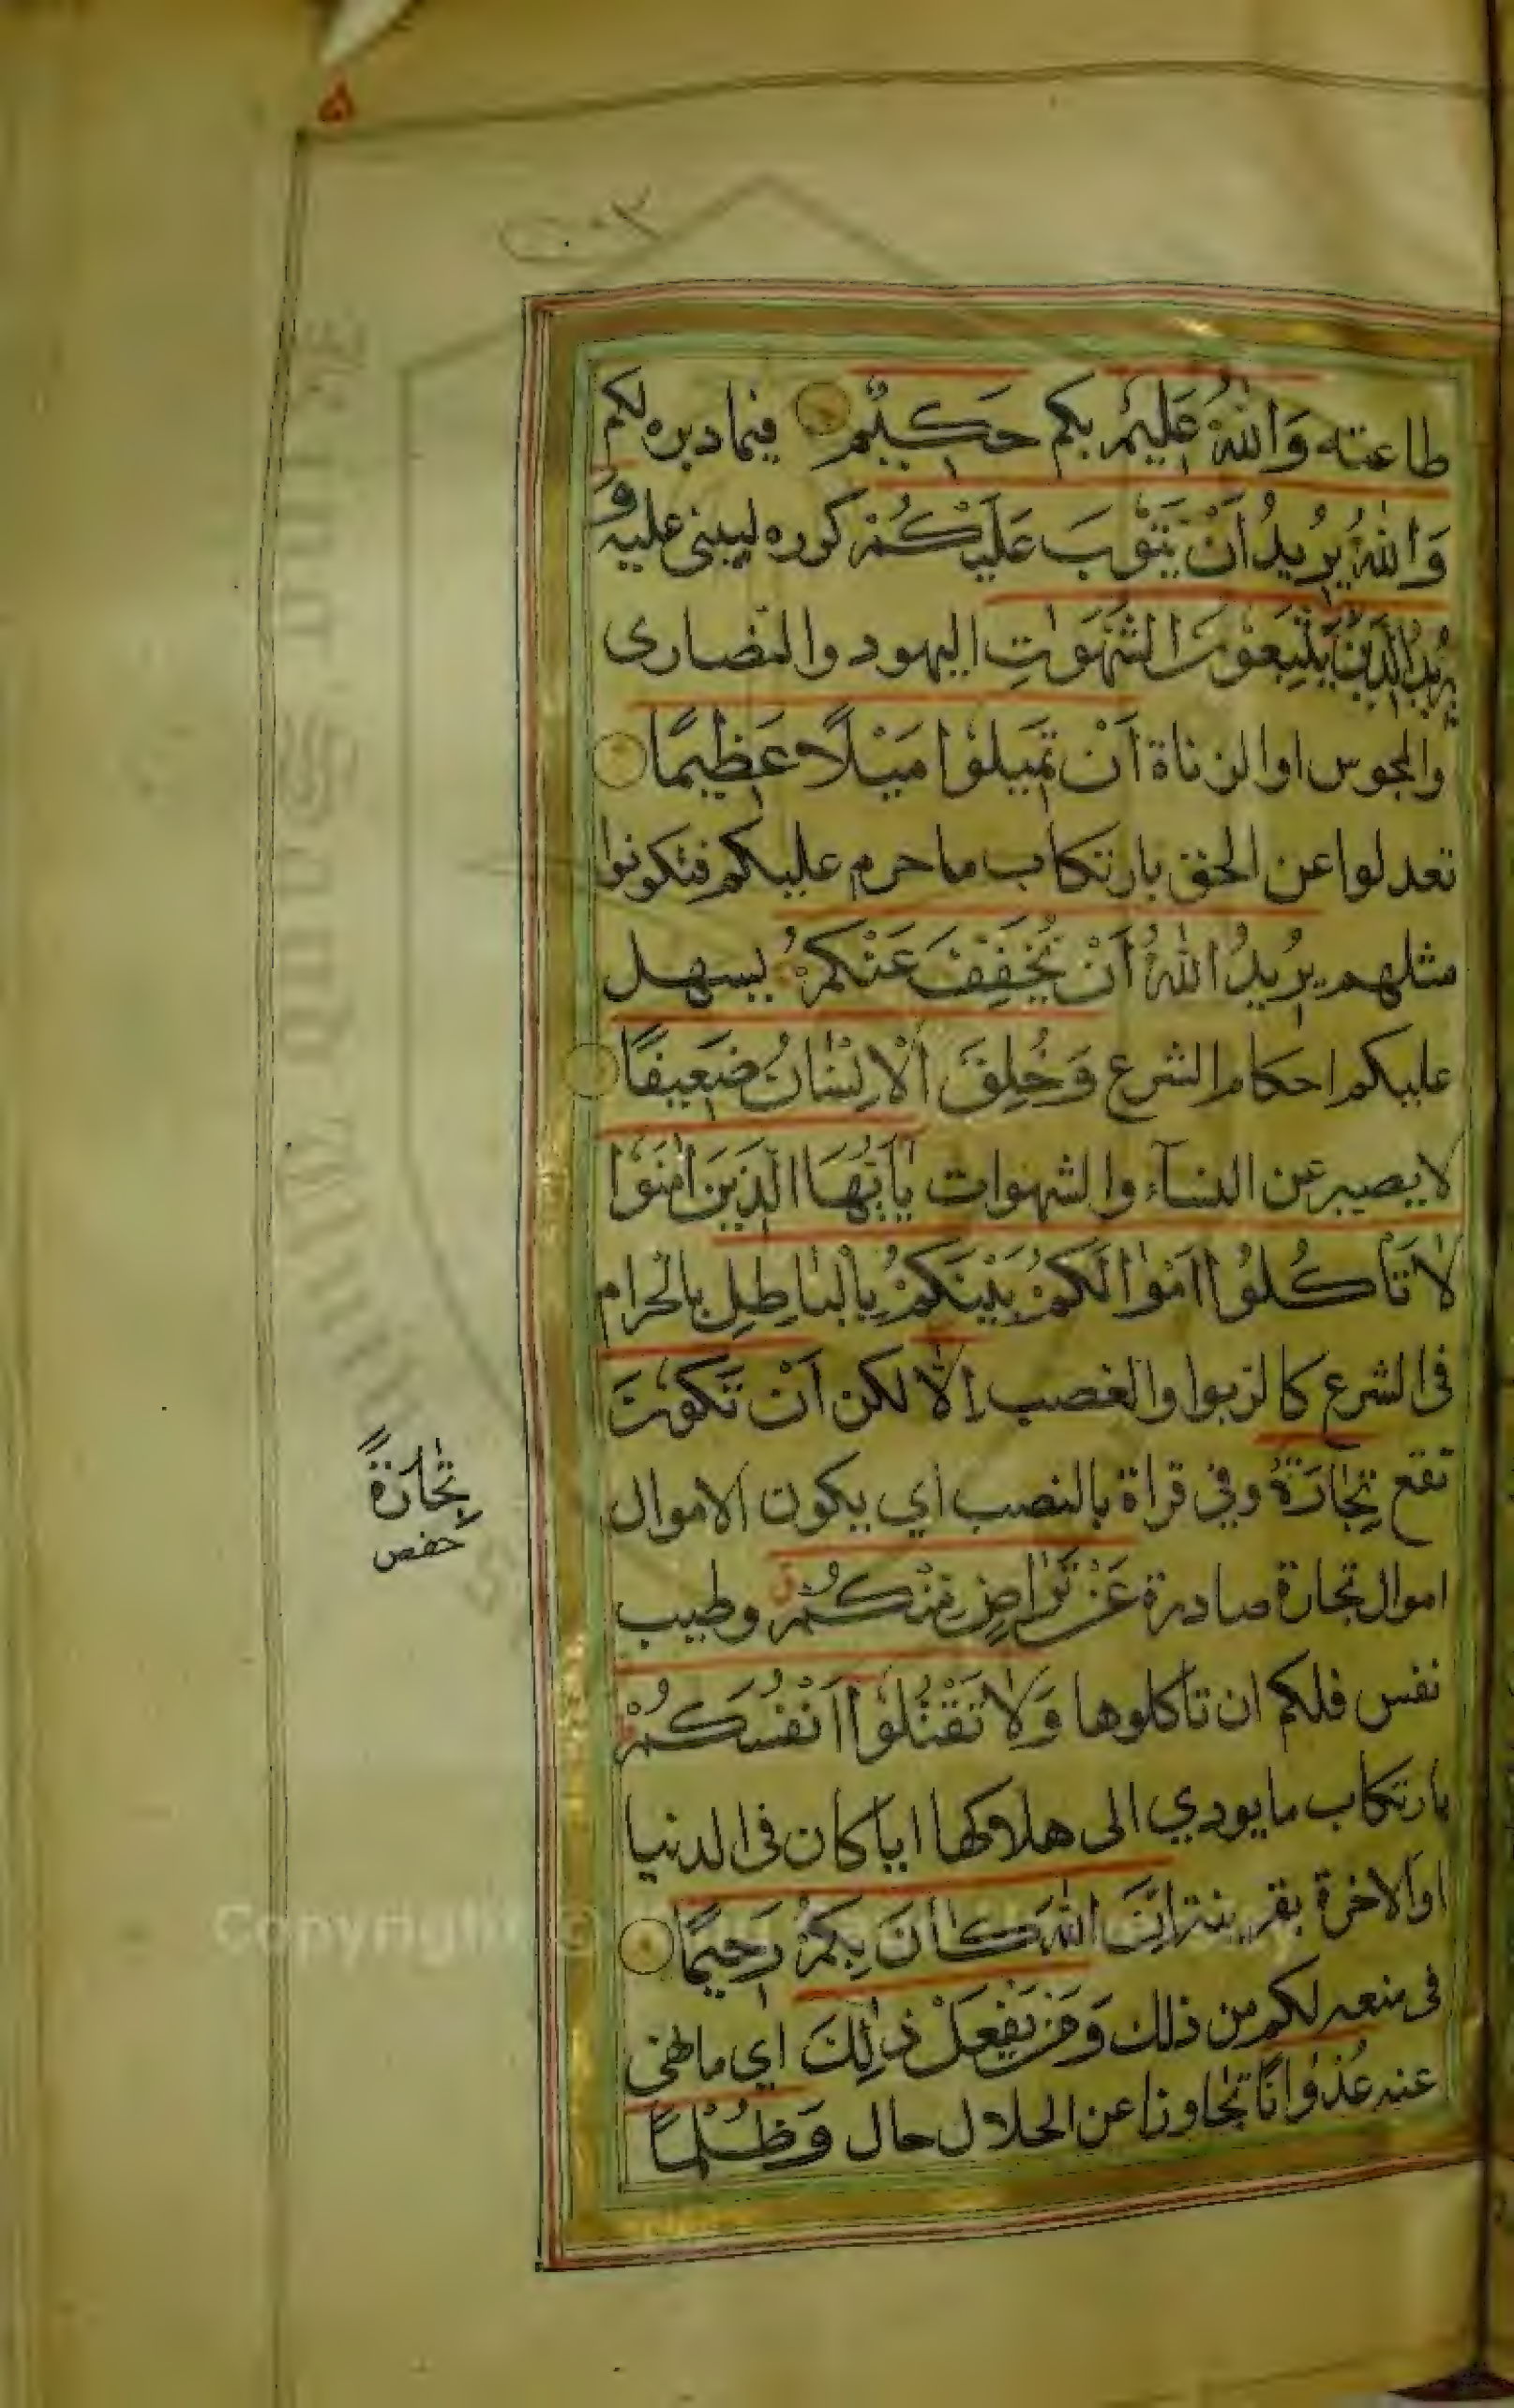 ٥
٢٠٣
طاعته وَاللّٰهُ عَلِيْمٌ بكم حَكِيْمٌ فيما دبره لكم
وَاللّٰهُ يُرِيْدُ اَنْ يَتُوْبَ عَلَيْكُمْ كرره ليبنى عليه وَ
يُرِيْدُ الَّذِيْنَ يَتَّبِعُوْنَ الشَّهَوٰتِ اليهود والنصارى
والمجوس اوالزناة اَنْ تَمِيْلُوْا مَيْلًا عَظِيْمًا
تعدلوا عن الحق بارتكاب ما حرم عليكم فتكونوا
مثلهم يُرِيْدُ اللّٰهُ اَنْ يُخَفِّفَ عَنْكُمْ يسهل
عليكم احكام الشرع وَخُلِقَ الْاِنْسَانُ ضَعِيْفًا
لا يصبر عن النسآء والشهوات يٰاَيُّهَا الَّذِيْنَ اٰمَنُوْا
لَا تَأْكُلُوْا اَمْوَالَكُمْ بَيْنَكُمْ بِالْبَاطِلِ بالحرام
فى الشرع كالربوا والغصب اِلَّا لكن اَنْ تَكُوْنَ
تقع تِجَارَةٌ وفي قراة بالنصب اي يكون الاموال
اموال تجارة صادرة عَنْ تَرَاضٍ مِّنْكُمْ وطيب
نفس فلكم ان تاكلوها وَلَا تَقْتُلُوْا اَنْفُسَكُمْ
بارتكاب ما يودي الى هلاكها ايا كان فى الدنيا
اوالاخرة بقرينة اِنَّ اللّٰهَ كَانَ بِكُمْ رَحِيْمًا
فى منعه لكم من ذلك وَمَنْ يَفْعَلْ ذٰلِكَ اي ما نهى
عنه عُدْوَانًا تجاوزا عن الحلال حال وَظُلْمًا
تِجَارَةً
حفص
Copyright ©